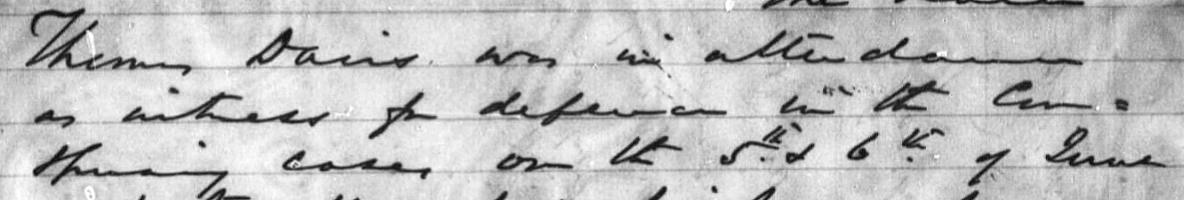 Thomas Davis was in attendance
as witness for defence in the Con=
spiracy cases on the 5th & 6th of June